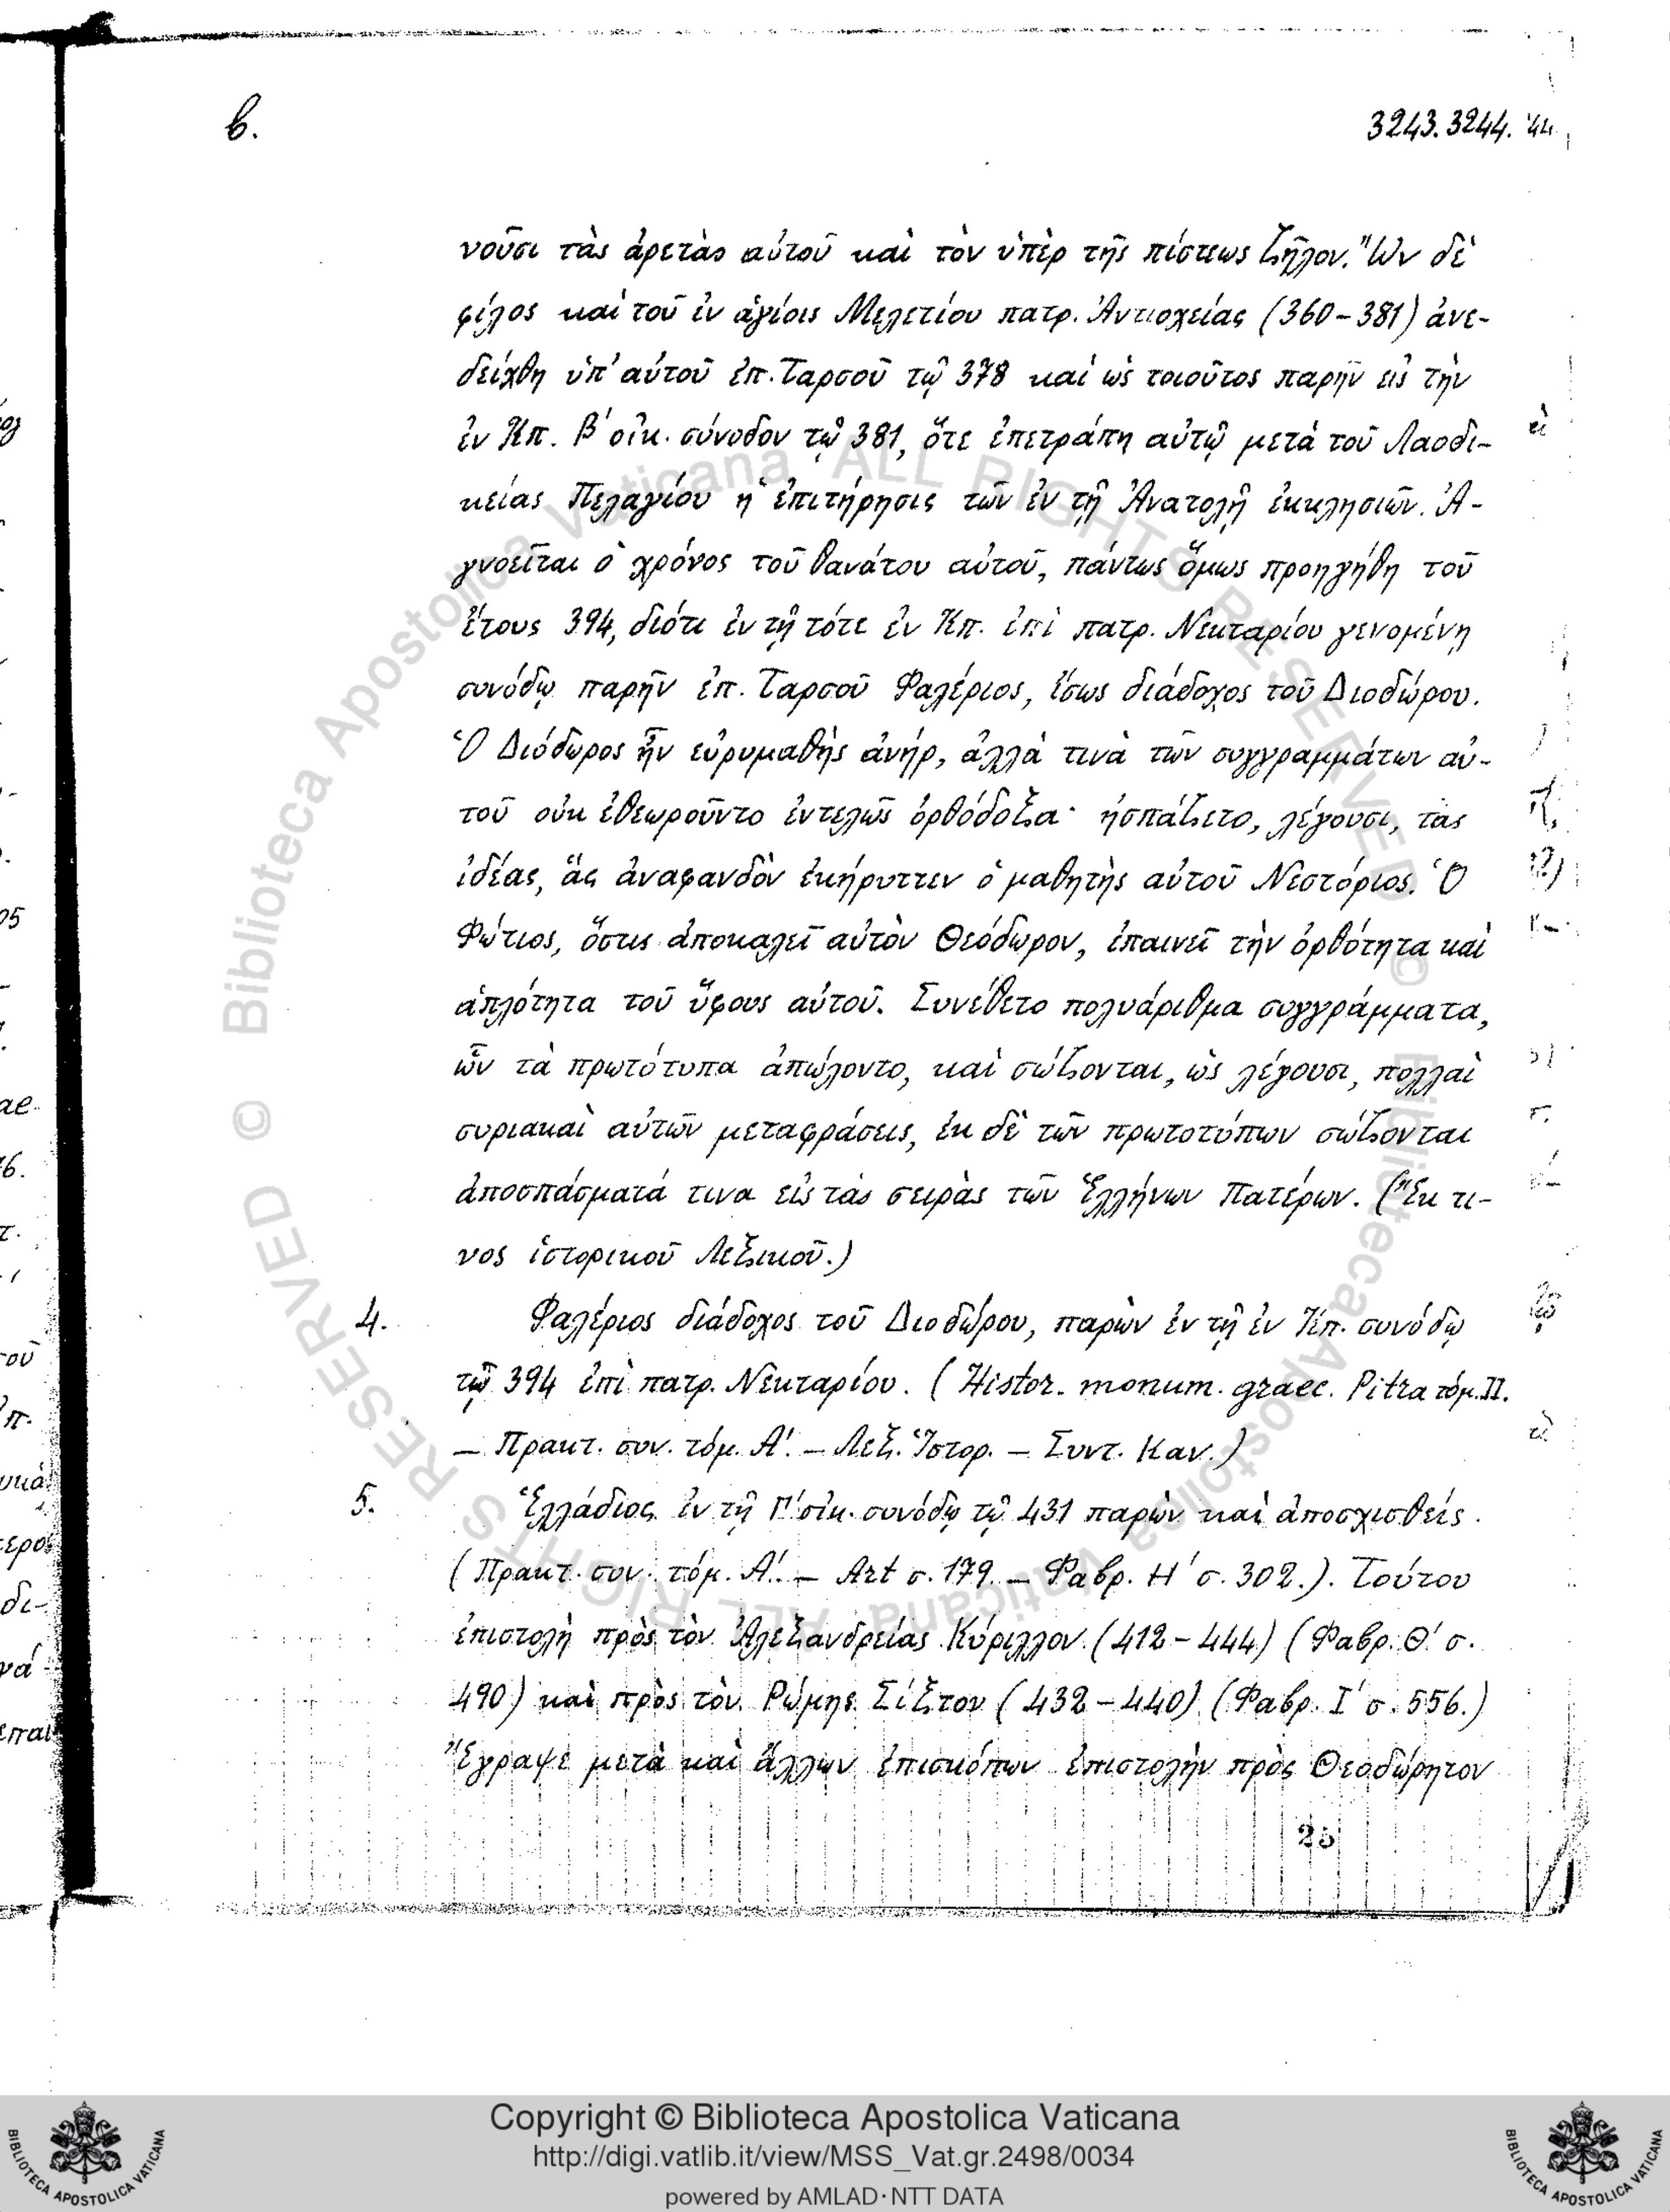 β.
3243.3244.
νοῦσι τὰς ἀρετὰς αὐτοῦ καὶ τὸν ὑπὲρ τῆς πίστεως ζῆλον. Ὢν δὲ
φίλος καὶ τοῦ ἐν ἁγίοις Μελετίου πατρ. Ἀντιοχείας (360-381) ἀνε-
δείχθη ὑπ' αὐτοῦ ἐπ. Ταρσοῦ τῷ 378 καὶ ὡς τοιοῦτος παρῆν εἰς τὴν
ἐν Κπ. Β' οἰκ. σύνοδον τῷ 381, ὅτε ἐπετράπη αὐτῷ μετὰ τοῦ Λαοδι-
κείας Πελαγίου ἡ ἐπιτήρησις τῶν ἐν τῇ Ἀνατολῇ ἐκκλησιῶν. Ἀ-
γνοεῖται ὁ χρόνος τοῦ θανάτου αὐτοῦ, πάντως ὅμως προηγήθη τοῦ
ἔτους 394, διότι ἐν τῇ τότε ἐν Κπ. ἐπὶ πατρ. Νεκταρίου γενομένῃ
συνόδῳ παρῆν ἐπ. Ταρσοῦ Φαλέριος, ἴσως διάδοχος τοῦ Διοδώρου.
Ὁ Διόδωρος ἦν εὐρυμαθὴς ἀνήρ, ἀλλά τινὰ τῶν συγγραμμάτων αὐ-
τοῦ οὐκ ἐθεωροῦντο ἐντελῶς ὀρθόδοξα· ἠσπάζετο, λέγουσι, τὰς
ἰδέας, ἃς ἀναφανδὸν ἐκήρυττεν ὁ μαθητὴς αὐτοῦ Νεστόριος. Ὁ
Φώτιος, ὅστις ἀποκαλεῖ αὐτὸν Θεόδωρον, ἐπαινεῖ τὴν ὀρθότητα καὶ
ἁπλότητα τοῦ ὕφους αὐτοῦ. Συνέθετο πολυάριθμα συγγράμματα,
ὧν τὰ πρωτότυπα ἀπώλοντο, καὶ σώζονται, ὡς λέγουσι, πολλαὶ
συριακαὶ αὐτῶν μεταφράσεις, ἐκ δὲ τῶν πρωτοτύπων σώζονται
ἀποσπάσματά τινα εἰς τὰς σειρὰς τῶν Ἑλλήνων Πατέρων. (Ἔκ τι-
νος ἱστορικοῦ Λεξικοῦ.)
4. Φαλέριος διάδοχος τοῦ Διοδώρου, παρὼν ἐν τῇ ἐν Κπ. συνόδῳ
τῷ 394 ἐπὶ πατρ. Νεκταρίου. (Histor. monum. graec. Pitra τόμ. II.
— Πρακτ. συν. τόμ. Α'. — Λεξ. Ἱστορ. — Συντ. Καν.)
5. Ἑλλάδιος ἐν τῇ Γ' οἰκ. συνόδῳ τῷ 431 παρὼν καὶ ἀποσχισθείς.
(Πρακτ. συν. τόμ. Α'. — Art σ. 179. — Φαβρ. Η' σ. 302.). Τούτου
ἐπιστολὴ πρὸς τὸν Ἀλεξανδρείας Κύριλλον (412-444) (Φαβρ. Θ' σ.
490) καὶ πρὸς τὸν Ρώμης Σίξτον (432-440) (Φαβρ. Ι' σ. 556.)
Ἔγραψε μετὰ καὶ ἄλλων ἐπισκόπων ἐπιστολὴν πρὸς Θεοδώρητον
25
Copyright © Biblioteca Apostolica Vaticana
http://digi.vatlib.it/view/MSS_Vat.gr.2498/0034
powered by AMLAD·NTT DATA
© Biblioteca Apostolica Vaticana ALL RIGHTS RESERVED
© Biblioteca Apostolica Vaticana ALL RIGHTS RESERVED
BIBLIOTECA APOSTOLICA VATICANA
BIBLIOTECA APOSTOLICA VATICANA